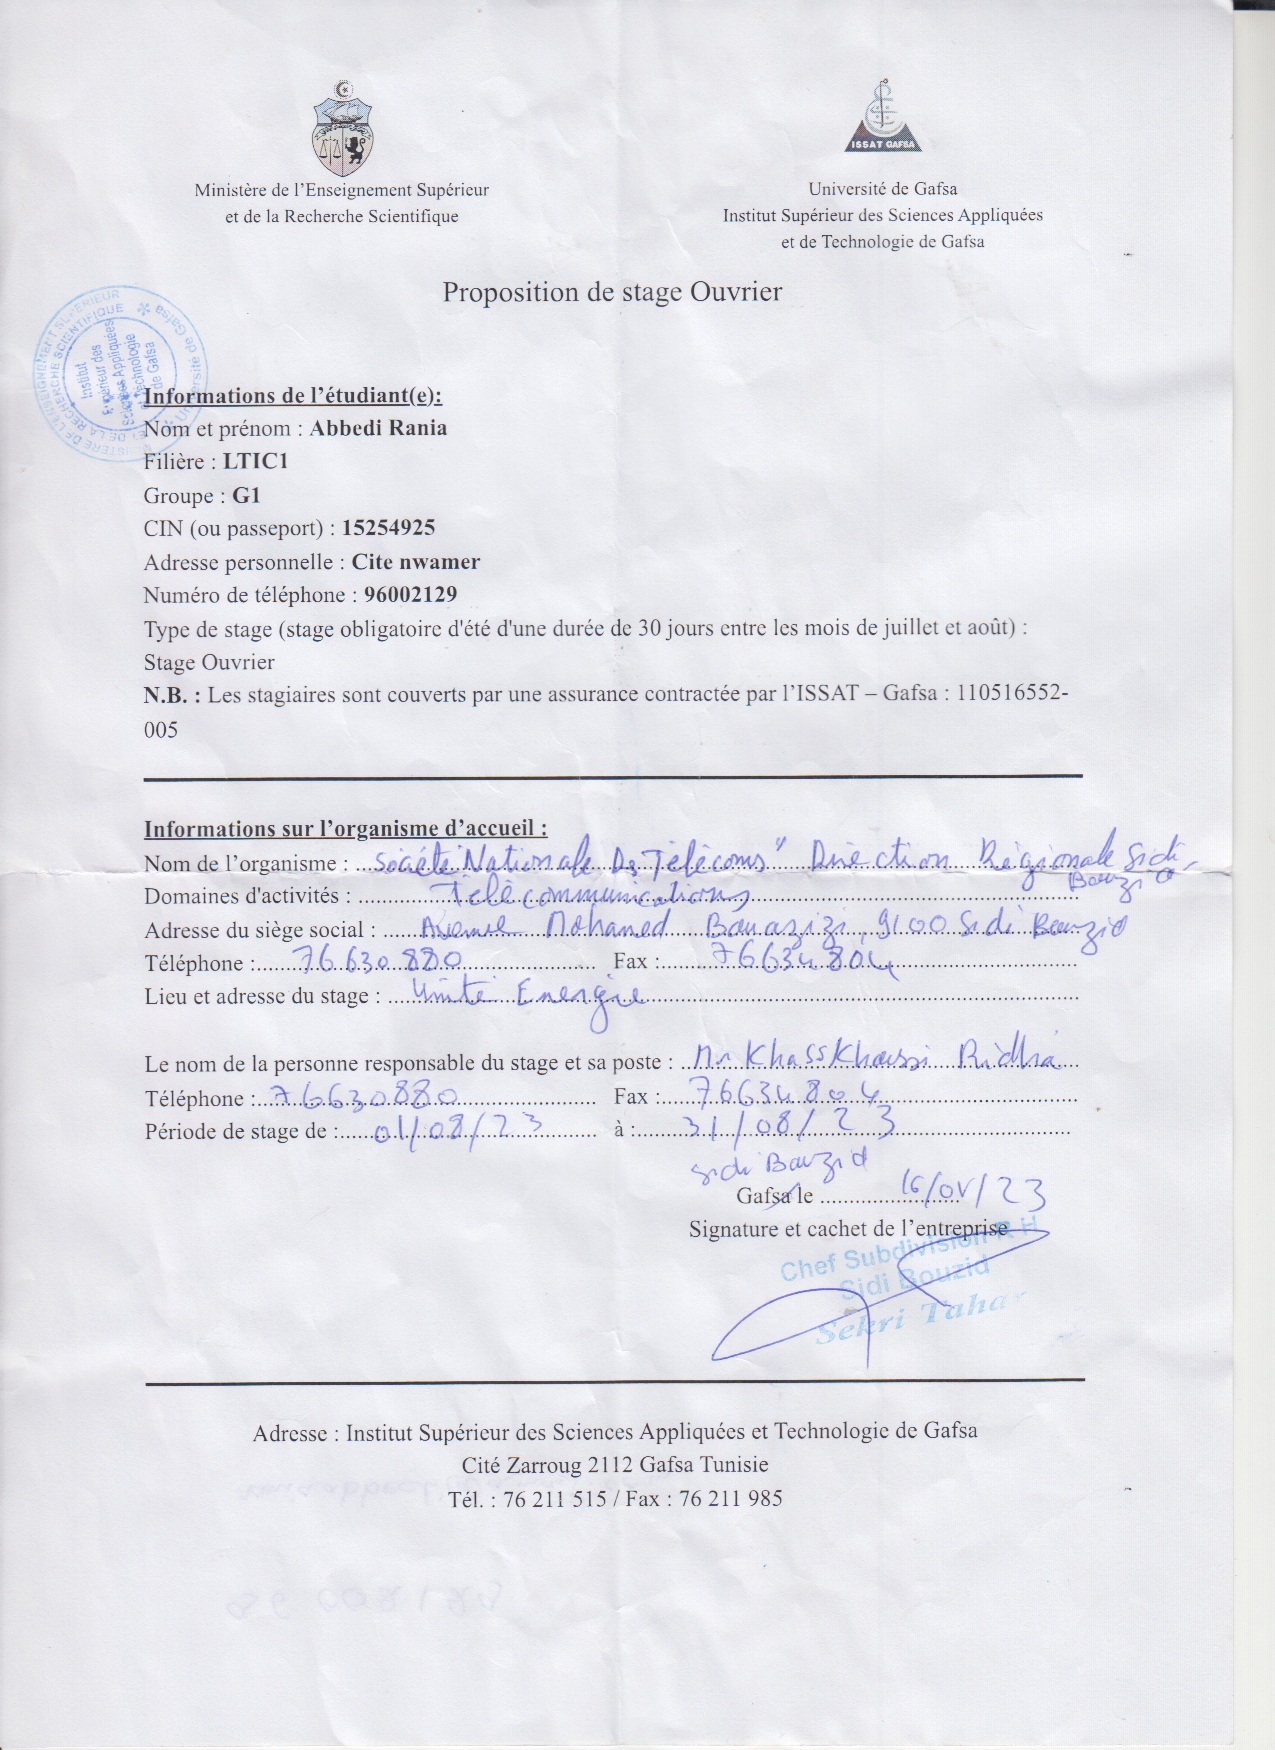 ISSAT GAFSA
Ministère de l'Enseignement Supérieur
et de la Recherche Scientifique
Université de Gafsa
Institut Supérieur des Sciences Appliquées
et de Technologie de Gafsa
Proposition de stage Ouvrier
Informations de l'étudiant(e):
Nom et prénom : Abbedi Rania
Filière : LTIC1
Groupe : G1
CIN (ou passeport) : 15254925
Adresse personnelle : Cite nwamer
Numéro de téléphone : 96002129
Type de stage (stage obligatoire d'été d'une durée de 30 jours entre les mois de juillet et août) :
Stage Ouvrier
N.B. : Les stagiaires sont couverts par une assurance contractée par l'ISSAT – Gafsa : 110516552-
005
Informations sur l'organisme d'accueil :
Nom de l'organisme : Société Nationale Des Télécoms" Direction Régionale Sidi
Bouzid
Domaines d'activités : Télécommunications
Adresse du siège social : Avenue Mohamed Bouazizi, 9100 Sidi Bouzid
Téléphone : 76 630 880 Fax : 76634804
Lieu et adresse du stage : Unité Energie
Le nom de la personne responsable du stage et sa poste : Mr Ridha
Téléphone : 76630880 Fax : 76634804
Période de stage de : 01/08/23 à : 31/08/23
Sidi Bouzid
Gafsa le 16/ /23
Signature et cachet de l'entreprise
Chef Subdivision R H
Sidi Bouzid
Sekri Tahar
Adresse : Institut Supérieur des Sciences Appliquées et Technologie de Gafsa
Cité Zarroug 2112 Gafsa Tunisie
Tél. : 76 211 515 / Fax : 76 211 985